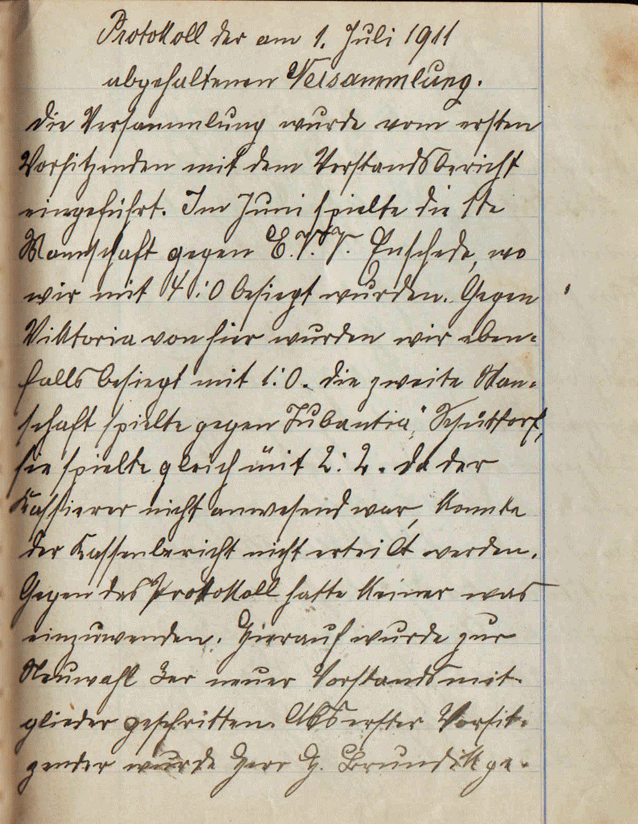 Protokoll der am 1. Juli 1911
abgehaltenen Versammlung.
Die Versammlung wurde vom ersten
Vorsitzenden mit dem Vorstandsbericht
eingeführt. Im Juni spielte die 1te
Mannschaft gegen E.V.V. Enschede, wo
wir mit 4:0 besiegt wurden. Gegen
Viktoria von hier wurden wir eben-
falls besiegt mit 1:0. Die zweite Man-
schaft spielte gegen Tubantia", Schüttorf,
sie spielte gleich mit 2:2. Da der
Kassierer nicht anwesend war, konnte
der Kassenbericht nicht erteilt werden.
Gegen das Protokoll hatte keiner was
einzuwenden. Hierauf wurde zur
Neuwahl 3er neuer Vorstandsmit-
glieder geschritten. Als erster Vorsit-
zender wurde Herr G. Brundik ge-